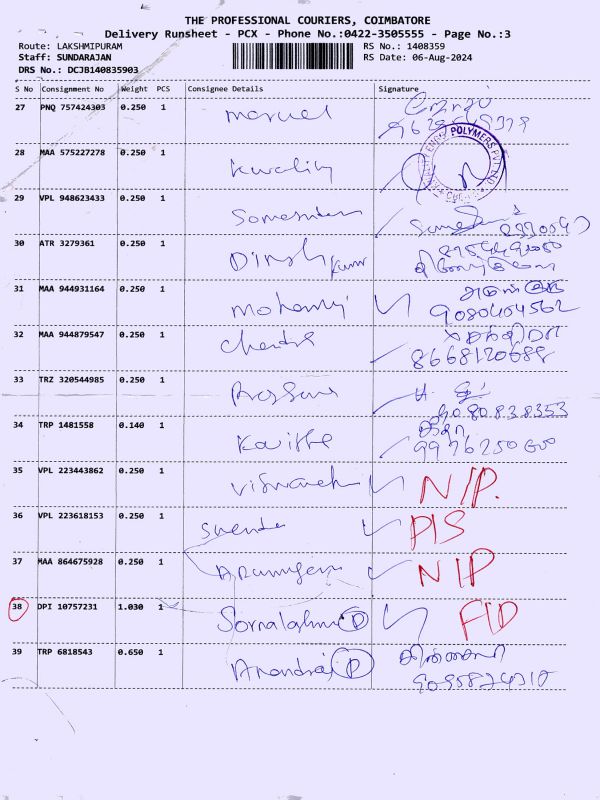 THE PROFESSIONAL COURIERS, COIMBATORE
Delivery Runsheet - PCX - Phone No.:0422-3505555 - Page No.:3
Route: LAKSHMIPURAM RS No.: 1408359
Staff: SUNDARAJAN RS Date: 06-Aug-2024
DRS No.: DCJB140835903
S No Consignment No Weight PCS Consignee Details Signature
27 PNQ 757424303 0.250 1
manuel
28 MAA 575227278 0.250 1
POLYMERS PVT
Kwality
29 VPL 948623433 0.250 1
30 ATR 3279361 0.250 1
Dinesh Kumar
31 MAA 944931164 0.250 1
mohanraj 9080404562
32 MAA 944879547 0.250 1
Chandra
8668120688
33 TRZ 320544985 0.250 1
9080838353
34 TRP 1481558 0.140 1
Kavitha
35 VPL 223443862 0.250 1
N/P.
36 VPL 223618153 0.250 1
P/S
37 MAA 864675928 0.250 1
Arumugam N/P
38 DPI 10757231 1.030 1
Sornalakshmi D F/D
39 TRP 6818543 0.650 1
Anandraj D